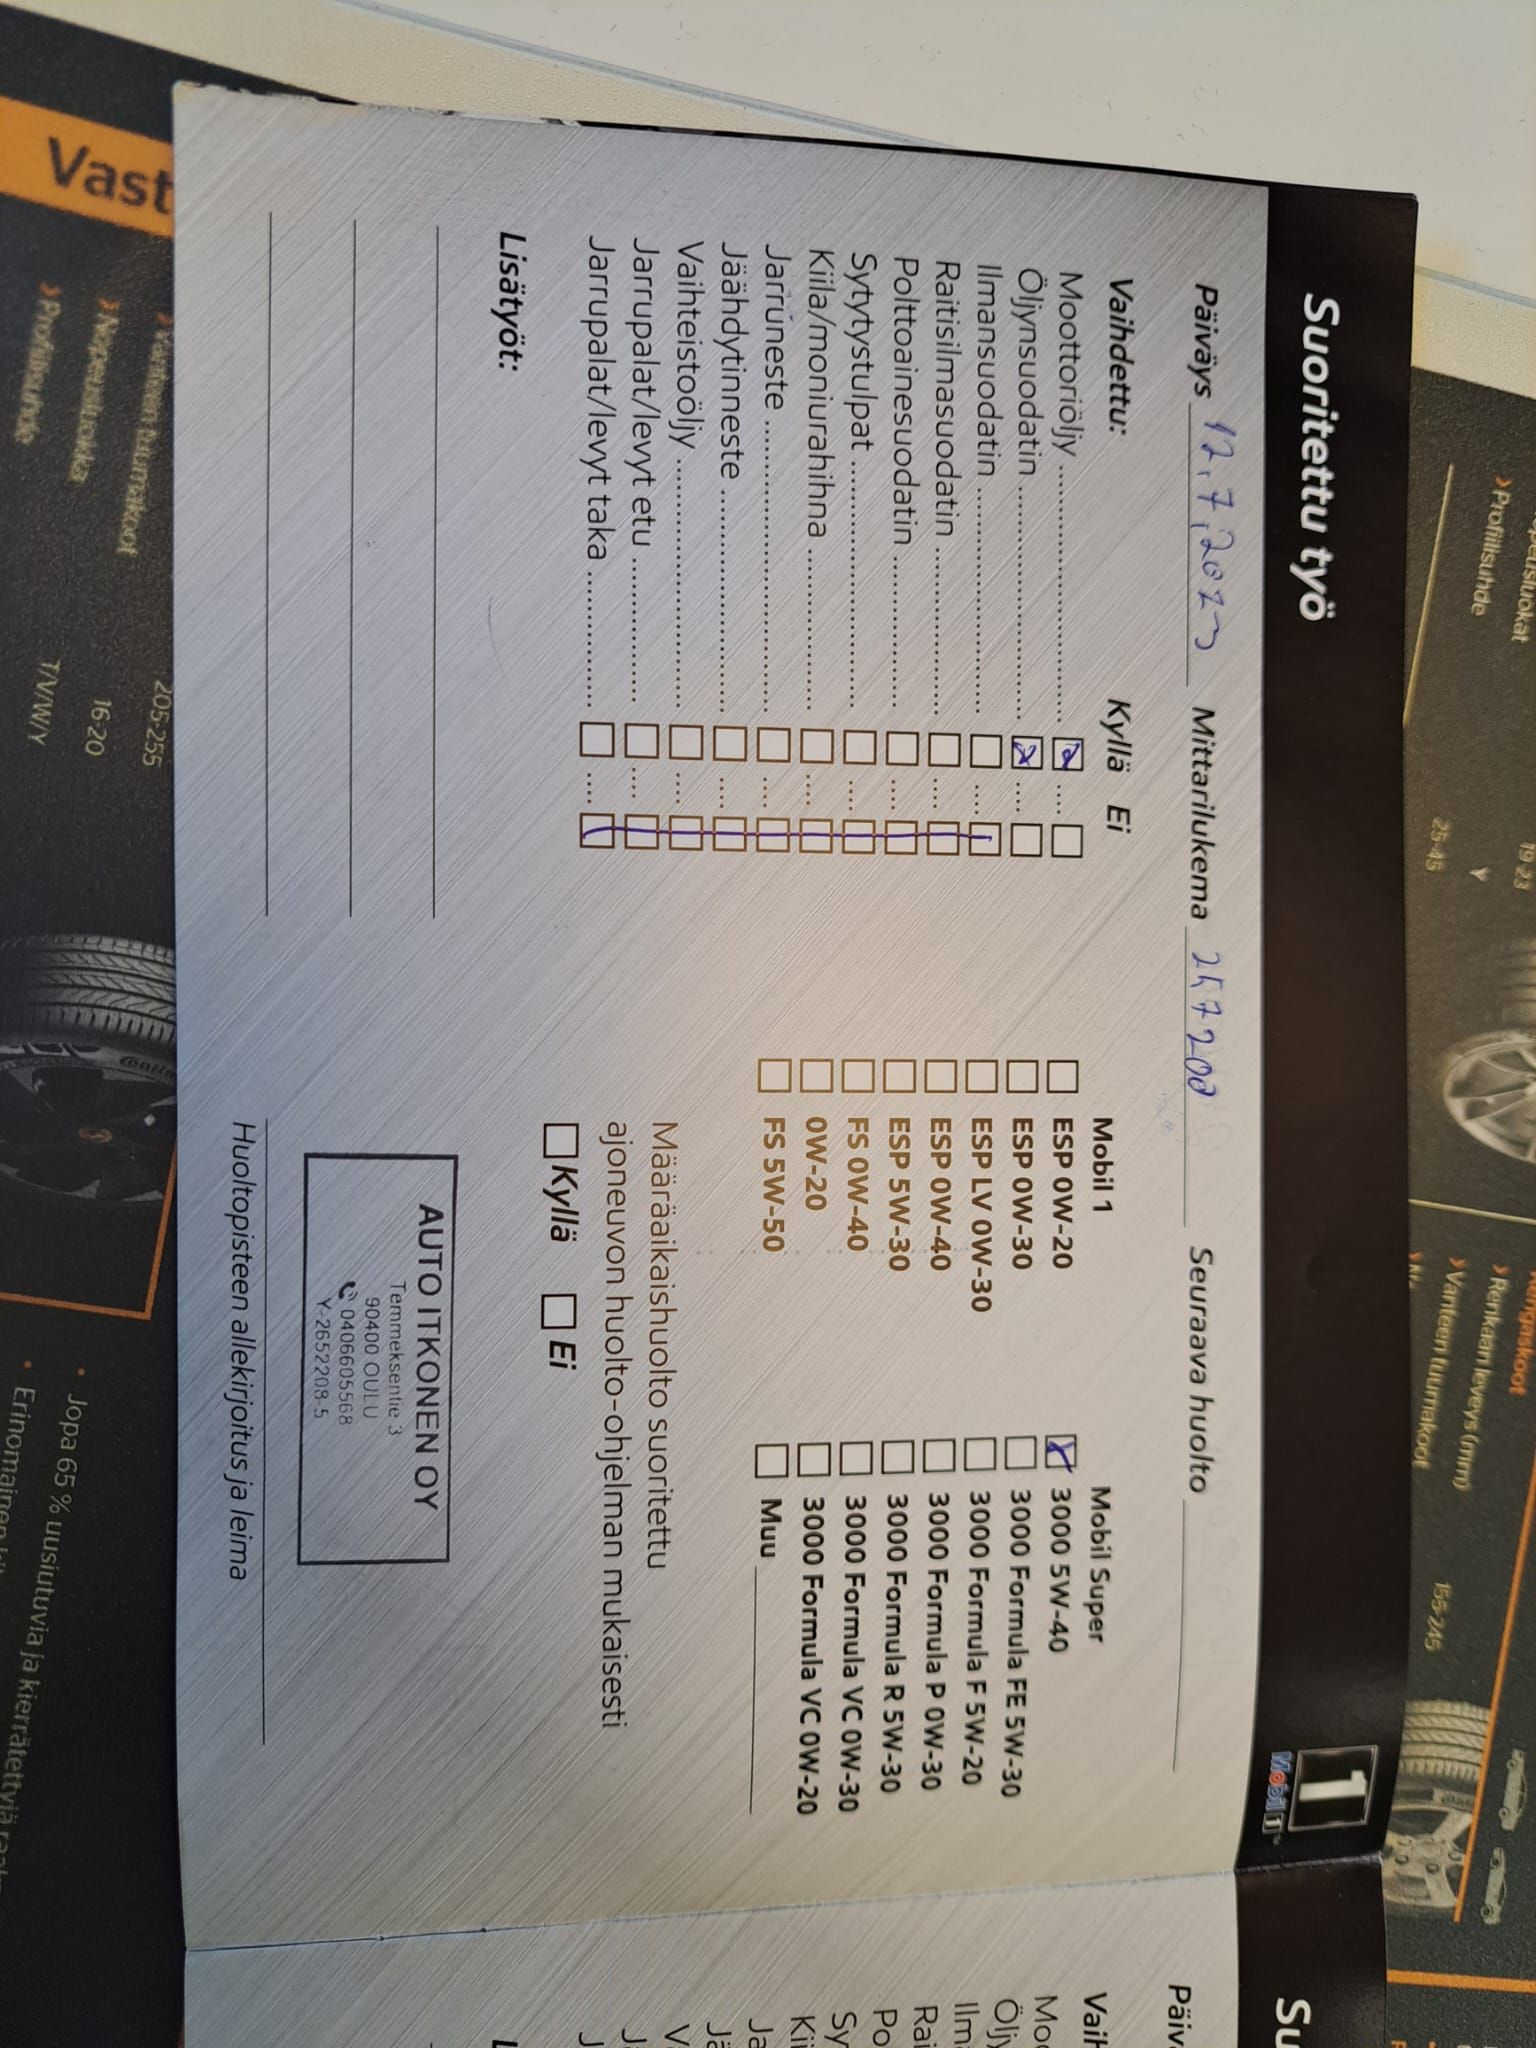 Suoritettu työ
1
Mobil 1
Päiväys 12.7.2023 Mittarilukema 257200 Seuraava huolto
Vaihdettu: Kyllä Ei
Moottoriöljy
Öljynsuodatin
Ilmansuodatin
Raitisilmasuodatin
Polttoainesuodatin
Sytytystulpat
Kiila/moniurahihna
Jarruneste
Jäähdytinneste
Vaihteistoöljy
Jarrupalat/levyt etu
Jarrupalat/levyt taka
Lisätyöt:
Mobil 1
ESP 0W-20
ESP 0W-30
ESP LV 0W-30
ESP 0W-40
ESP 5W-30
FS 0W-40
0W-20
FS 5W-50
Mobil Super
3000 5W-40
3000 Formula FE 5W-30
3000 Formula F 5W-20
3000 Formula P 0W-30
3000 Formula R 5W-30
3000 Formula VC 0W-30
3000 Formula VC 0W-20
Muu
Määräaikaishuolto suoritettu
ajoneuvon huolto-ohjelman mukaisesti
Kyllä Ei
AUTO ITKONEN OY
Temmeksentie 3
90400 OULU
0406605568
Y-2652208-5
Huoltopisteen allekirjoitus ja leima
Su
Päiv
Vaih
Moo
Öljy
Ilma
Rai
Po
Sy
Kii
Ja
Jä
V
J
J
L
Vast
Vanteen tuumakoot 205-255
Nopeusluokka 16-20
Profiilisuhde T/V/W/Y
Jopa 65 % uusiutuvia ja kierrätettyjä
Erinomainen
Profiilisuhde
19-23
Y
25-45
Rengaskoot
Renkaan leveys (mm)
Vanteen tuumakoot
155-245